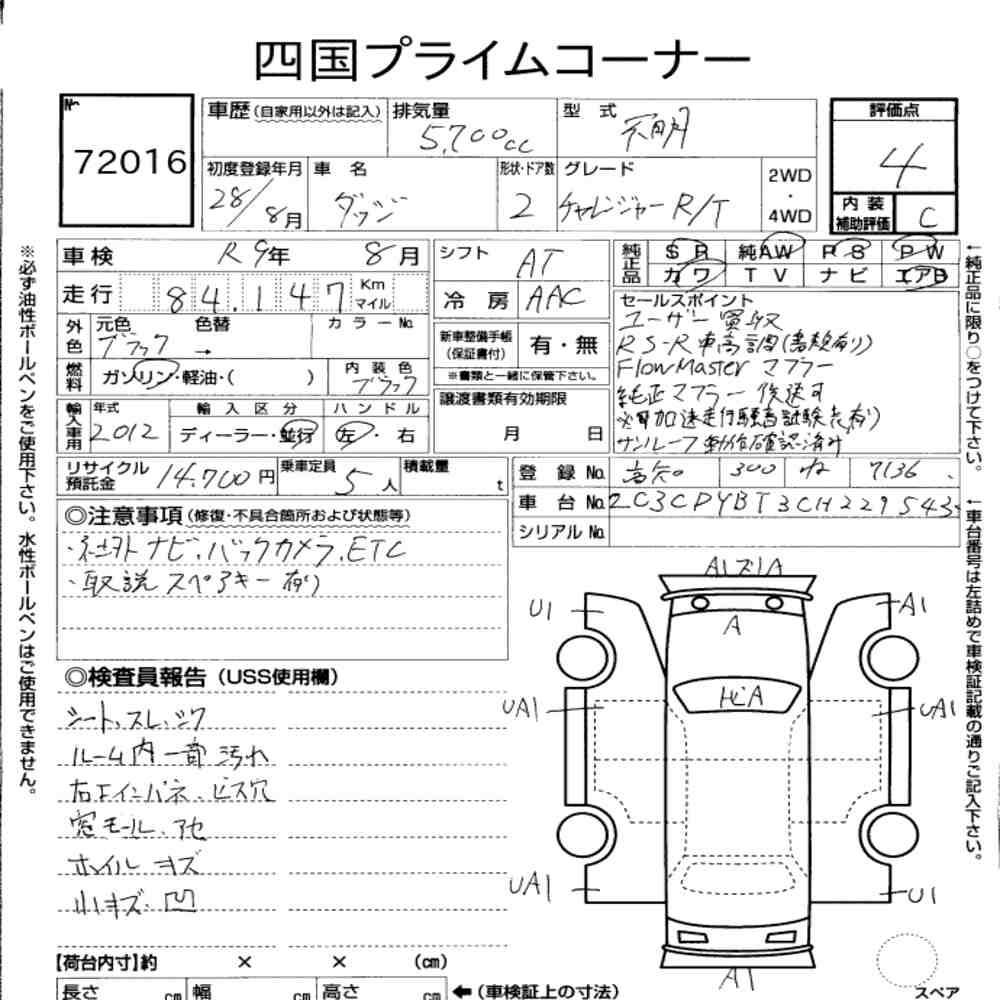 四国プライムコーナー
No. 72016
車歴 (自家用以外は記入)
排気量 5,700cc
型式 不明
評価点 4
初度登録年月 28/8月
車名 ダッジ
形状・ドア数 2
グレード チャレンジャー R/T
2WD・4WD
内装補助評価 C
※必ず油性ボールペンをご使用下さい。水性ボールペンはご使用できません。
車検 R9年 8月
シフト AT
純正品 SR 純AW PS PW
カワ TV ナビ エアB
走行 84,147 Km マイル
冷房 AAC
外色 元色 ブラック 色替 → カラーNo.
新車整備手帳 (保証書付) 有・無
※書類と一緒に保管下さい。
燃料 ガソリン・軽油・( )
内装色 ブラック
譲渡書類有効期限 月 日
セールスポイント
ユーザー買取
RS-R車高調(書類有り)
FlowMaster マフラー
純正マフラー後送可
※加速走行騒音試験表有り)
サンルーフ動作確認済み
輸入車用 年式 2012
輸入区分 ディーラー・並行
ハンドル 左・右
リサイクル預託金 14,700円
乗車定員 5人
積載量 t
登録No. 高知 300 ね 7136
車台No. 2C3CPYBT3CH229543
シリアルNo.
←純正品に限り○をつけて下さい。
←車台番号は左詰めで車検証記載の通りご記入下さい。
◎注意事項 (修復・不具合箇所および状態等)
・社外ナビ、バックカメラ、ETC
・取説 スペアキー有り
◎検査員報告 (USS使用欄)
シート、スレ、シワ
ルーム内一部汚れ
右エインパネ、ビス穴
窓モール、アセ
ホイルキズ
小キズ、凹
A1 ズ1A
U1
A1
A
UA1
ヒビA
UA1
UA1
U1
A1
【荷台内寸】約 × × (cm)
長さ cm 幅 cm 高さ cm ←(車検証上の寸法)
スペア